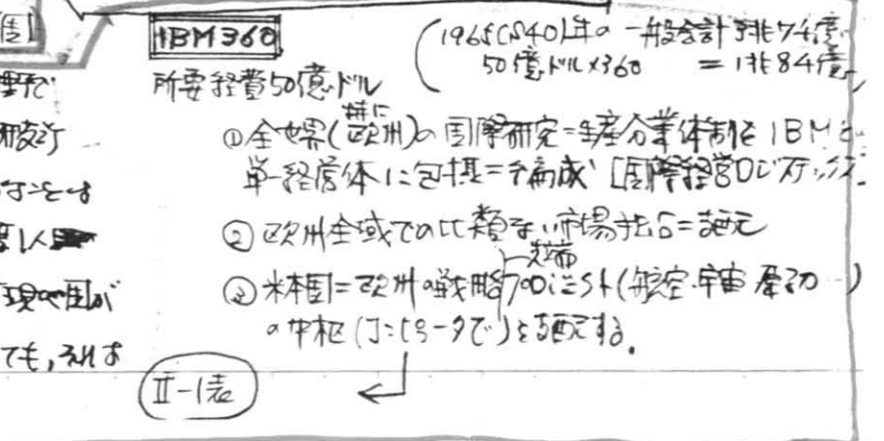 IBM360
1965(S40)年の一般会計 3兆74億
50億ドル×360 = 1兆84億
所要経費50億ドル
①全世界(特に欧州)の国際研究=生産分業体制をIBMと
単一経営体に包摂=再編成 [国際経営ロジスティックス]
②欧州全域での比類ない市場独占=支配
③米本国=欧州の戦略 先端 プロジェクト(航空・宇宙 原子力 )
の中枢(コンピュータで)を支配する。
Ⅱ-1表
研究所
ても,それは